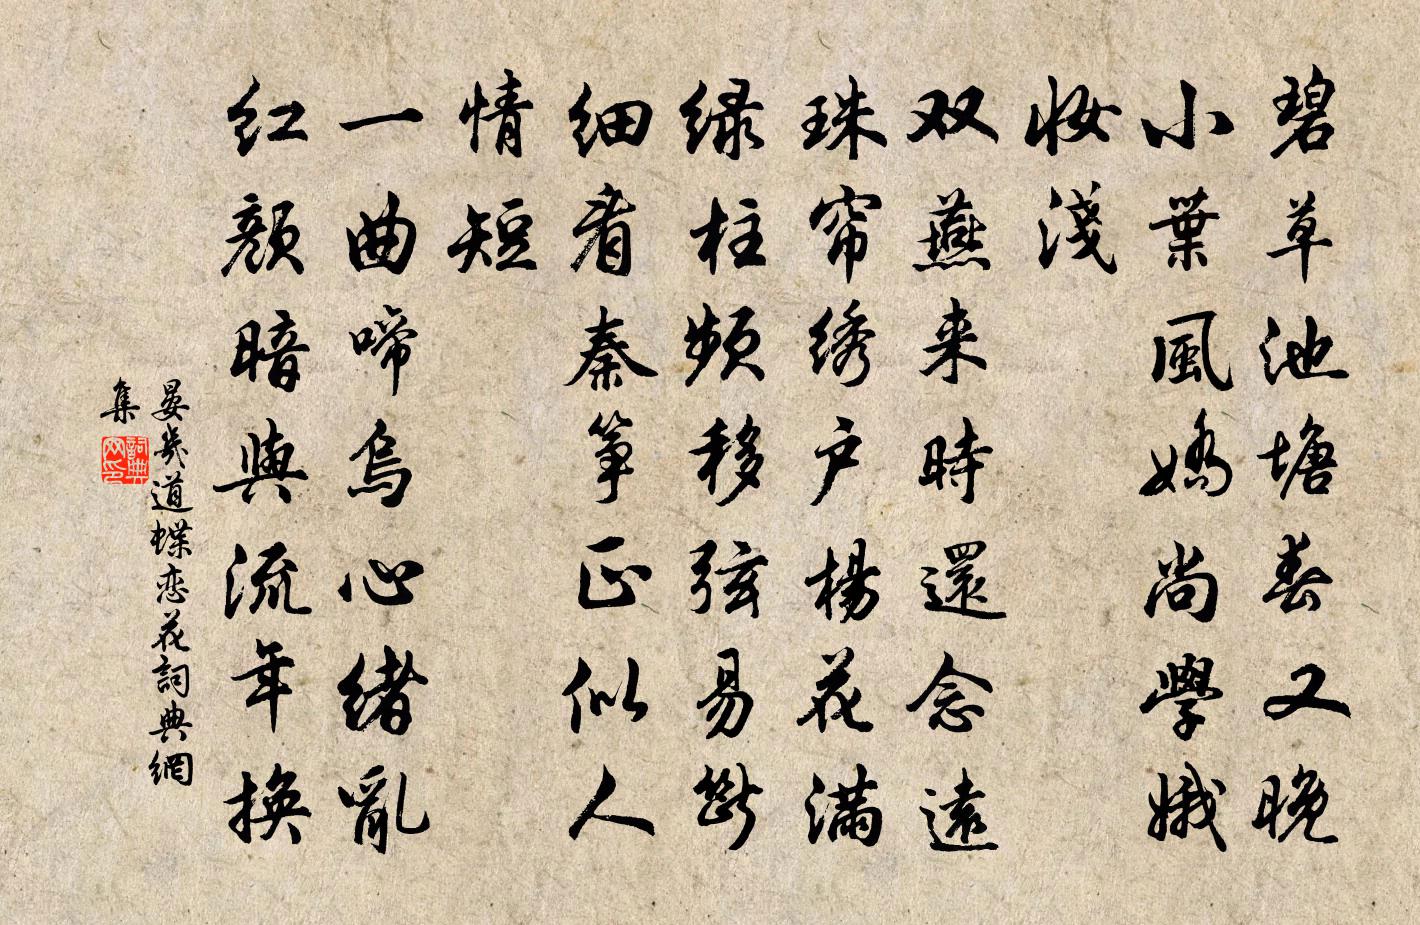 碧草池塘春又晚
小葉風嬌尚學娥
妝淺
双燕来時還念遠
珠帘绣户楊花滿
绿柱频移弦易斷
细看秦筝正似人
情短
一曲啼烏心绪亂
红顏暗與流年换
晏幾道蝶恋花詞典網
集
詞典
网印